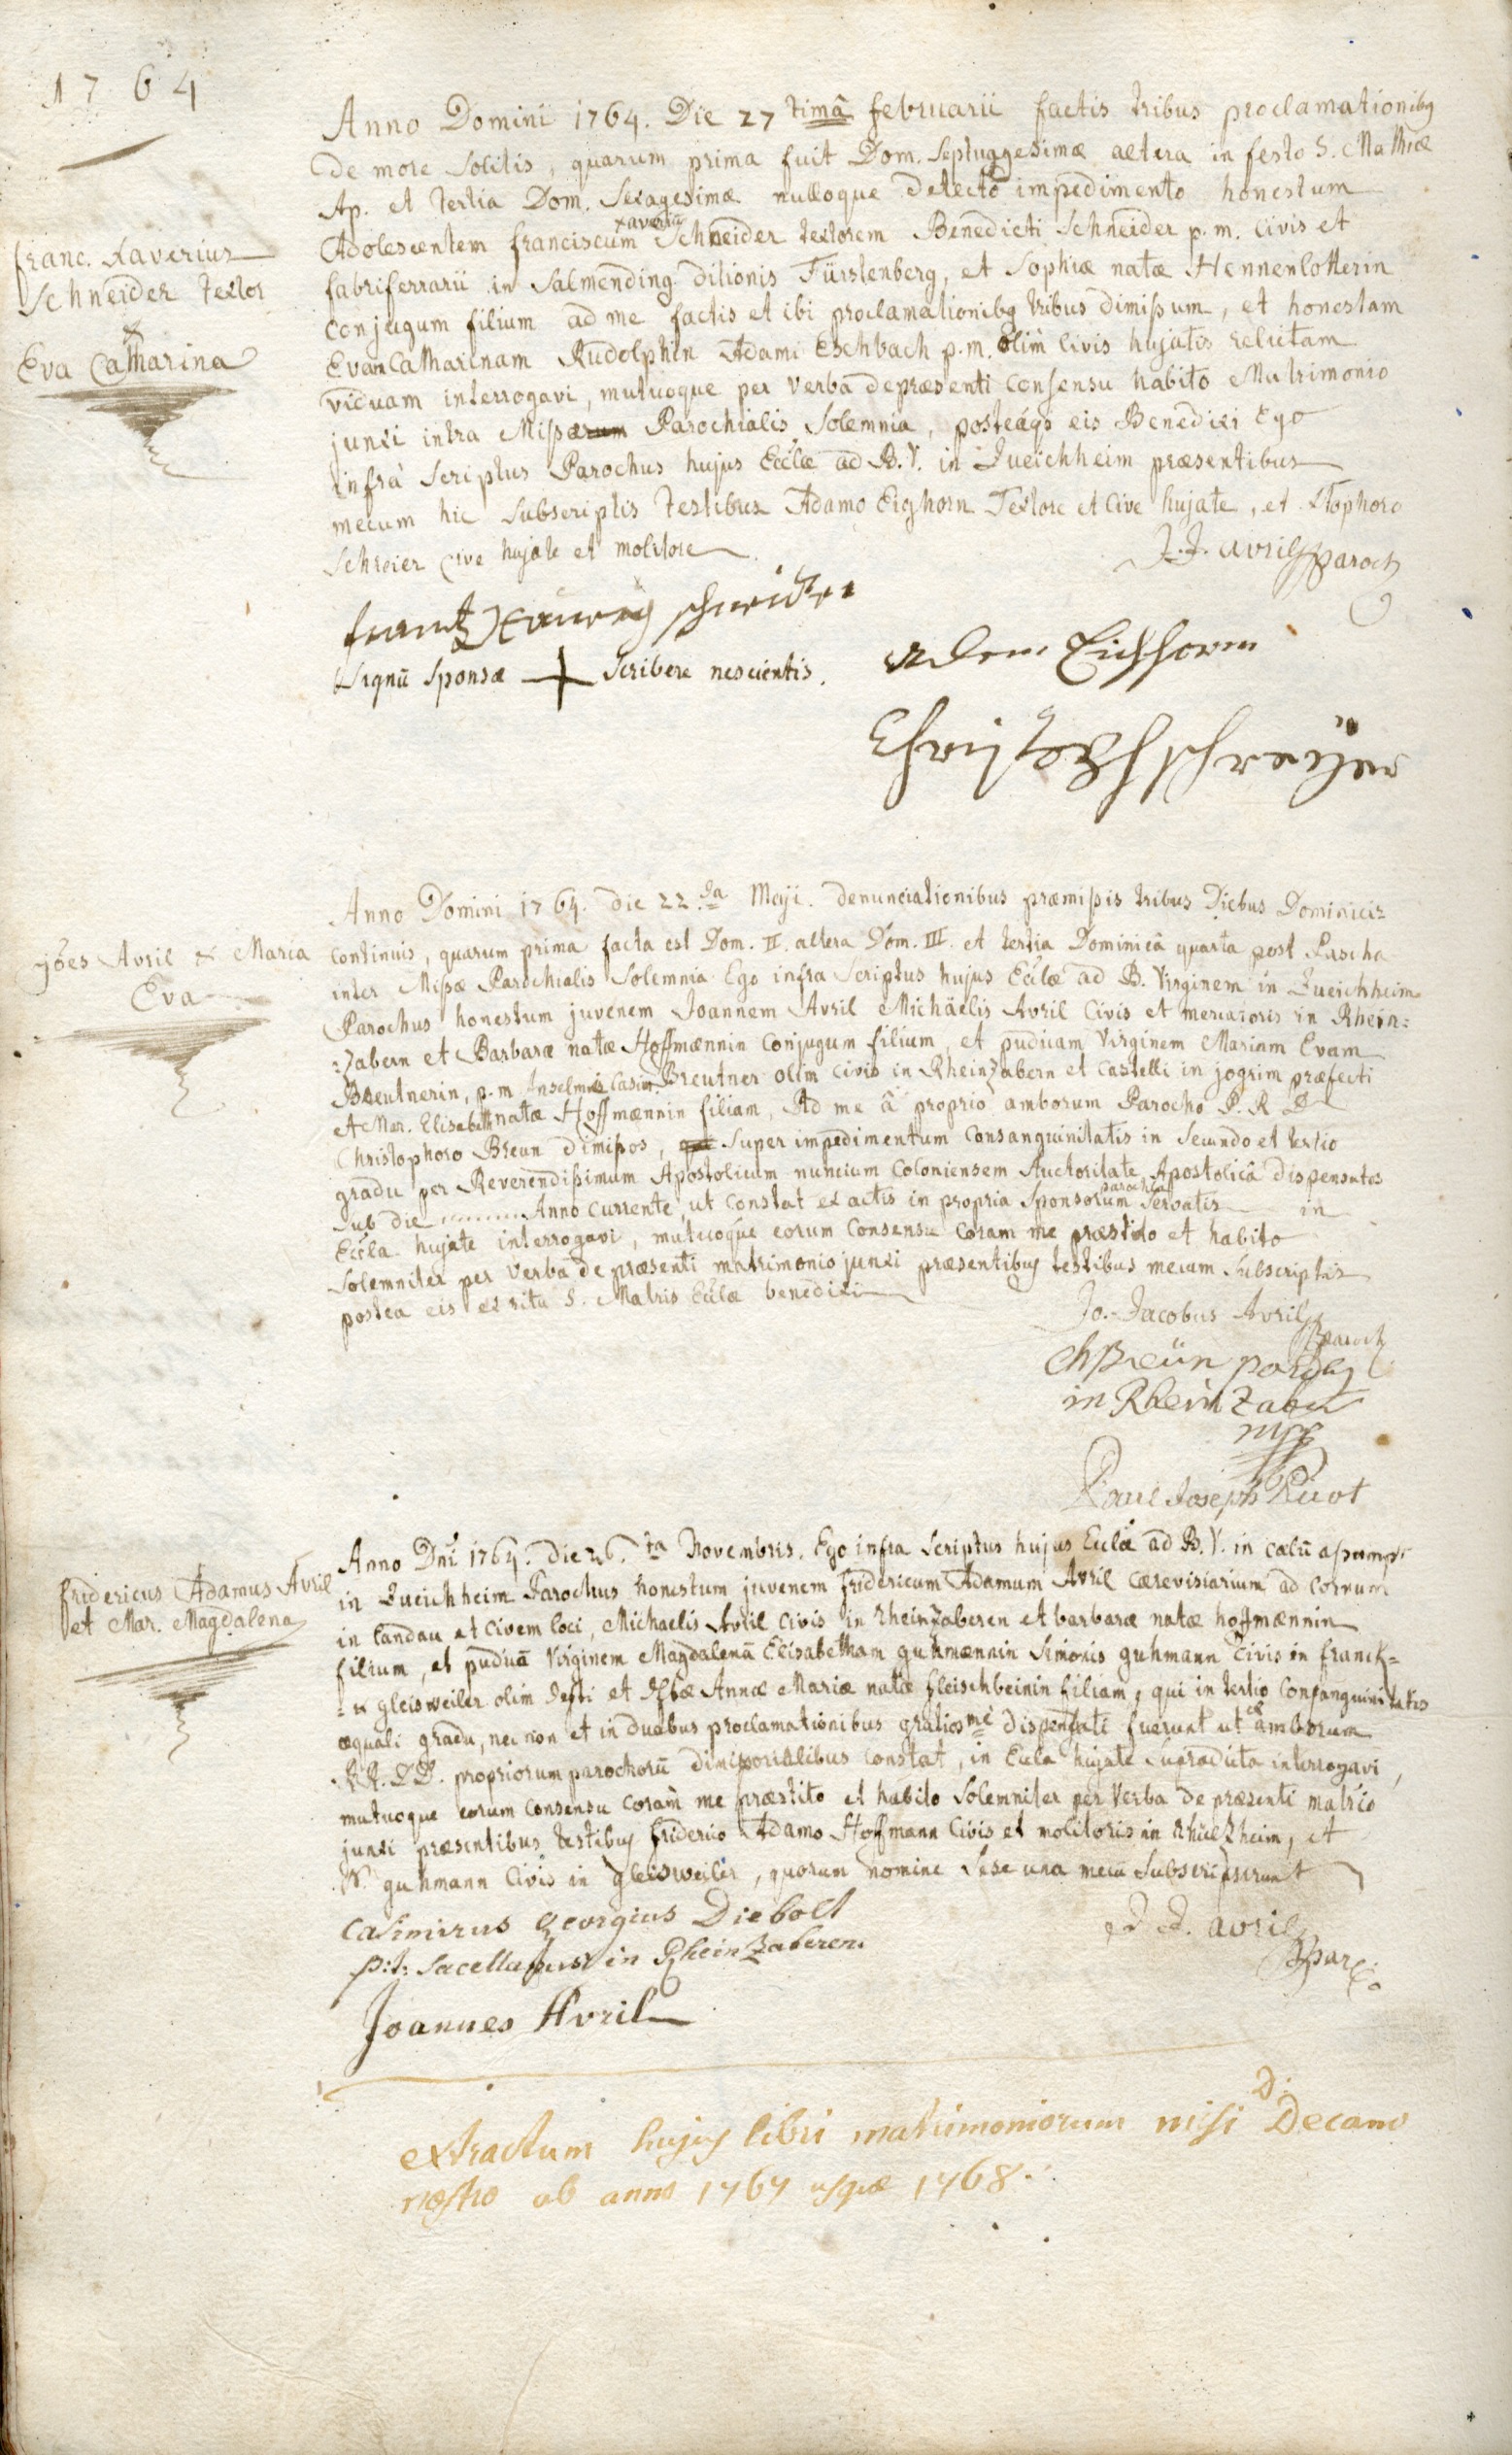 1764
Anno Domini 1764. Die 27 timâ februarii factis tribus proclamationibg
de more solitis, quarum prima fuit Dom. Septuggesimæ altera in festo S. Mathiæ
Ap. et tertia Dom. Sexagesimæ nulloque detecto impedimento honestum
xaveriū
Adolescentem franciscum Schneider textorem Benedicti Schneider p.m. Civis et
fabriferrarii in Salmending ditionis Fürstenberg, et Sophiæ natæ Hennenlotterin
Conjugum filium ad me factis et ibi proclamationibg tribus dimißum, et honestam
Evam Catharinam Rudolphin Adami Eschbach p.m. olim Civis hujatis relictam
viduam interrogavi, mutuoque per verba depræsenti Consensu habito Matrimonio
junxi intra Mißæ Parochialis Solemnia, posteáqs eis Benedixi Ego
infrà Scriptus Parochus hujus Eccłæ ad B.V. in Queichheim præsentibus
mecum hic Subscriptis testibus Adamo Eighorn Textore et Cive hujate, et Xtophoro
Schreier Cive hujate et molitore
J.J. avril Paroch
franc. Xaverius
Schneider textor
&
Eva Catharina
frantz Xaverÿ schneider
Signū Sponsæ + Scribere nescientis.
Adam Eichhorn
Christoph schreÿer
Anno Domini 1764. die 22.da Maji. denunciationibus præmißis tribus Diebus Dominicis
continuis, quarum prima facta est Dom. II. altera Dom. III. et tertia Dominicâ quarta post Pascha
inter Mißæ Parochialis Solemnia Ego infra Scriptus hujus Eccłæ ad B. Virginem in Queichheim
Parochus honestum juvenem Joannem Avril Michäelis Avril Civis et mercatoris in Rhein:
:zabern et Barbaræ natæ Hoffmænnin Conjugum filium, et pudicam Virginem Mariam Evam
Breutnerin, p.m. Anselmi Casim. Breutner olim Civis in Rheinzabern et Castelli in jogrim præfecti
et Mar. Elisabeth natæ Hoffmænnin filiam, Ad me â proprio amborum Parocho P. R. D
Christophoro Breun dimißos, Super impedimentum Consanguinitatis in Secundo et tertio
gradu per Reverendißimum Apostolicum nuncium Coloniensem Auctoritate Apostolicâ dispensatos
parochia
Sub die ......... Anno Currente, ut Constat ex actis in propria Sponsorum Servatis in
Eccła hujate interrogavi, mutuoque eorum Consensu Coram me præstito et habito
Solemniter per Verba de præsenti matrimonio junxi præsentibus testibus mecum Subscriptis
postea eis ex ritu S. Matris Eccłæ benedixi
Jões Avril & Maria
Eva
Jo. Jacobus Avril
Paroch
Ch Breün
in Rheinzabern
mpp
Paul Joseph
Anno Dnī 1764. die 26.ta Novembris. Ego infra Scriptus hujus Eccłæ ad B.V. in Cælū aßumpt
in Queichheim Parochus honestum juvenem fridericum Adamum Avril Cærevisiarium ad Corvum
in Landau et Civem loci, Michaelis Avril Civis in rheinzaberen et barbaræ natæ hoffmænnin
filium, et pudicā Virginem Magdalenā Elisabetham guhmænnin Simonis guhmann Civis in franck=
=& gleisweiler olim defti et defctæ Annæ Mariæ natæ fleischbeinin filiam, qui in tertio Consanguinitatis
æquali gradu, nec non et in duabus proclamationibus gratiosmè dispensati fuerunt ut ex amborum
RR. DD. propriorum parochorū dimißorialibus Constat, in Eccła hujate Supradicta interrogavi,
mutuoque eorum Consensu Coram me præstito et habito Solemniter per Verba de præsenti matrio
junxi præsentibus testibus friderico Adamo Hoffmann Civis et molitoris in rhülzheim, et
N. guhmann Civis in gleisweiler, quorum nomine Sese una mecū Subscripserunt
fridericus Adamus Avril
et Mar. Magdalena
Casimirus Georgius Diebolt
p:t: Sacellanus in Rheinzaberen
J J. avril
Par
Joannes Avril
D:
extractum hujus libri matrimoniorum misi Decano
nostro ab anno 1767 usque 1768.